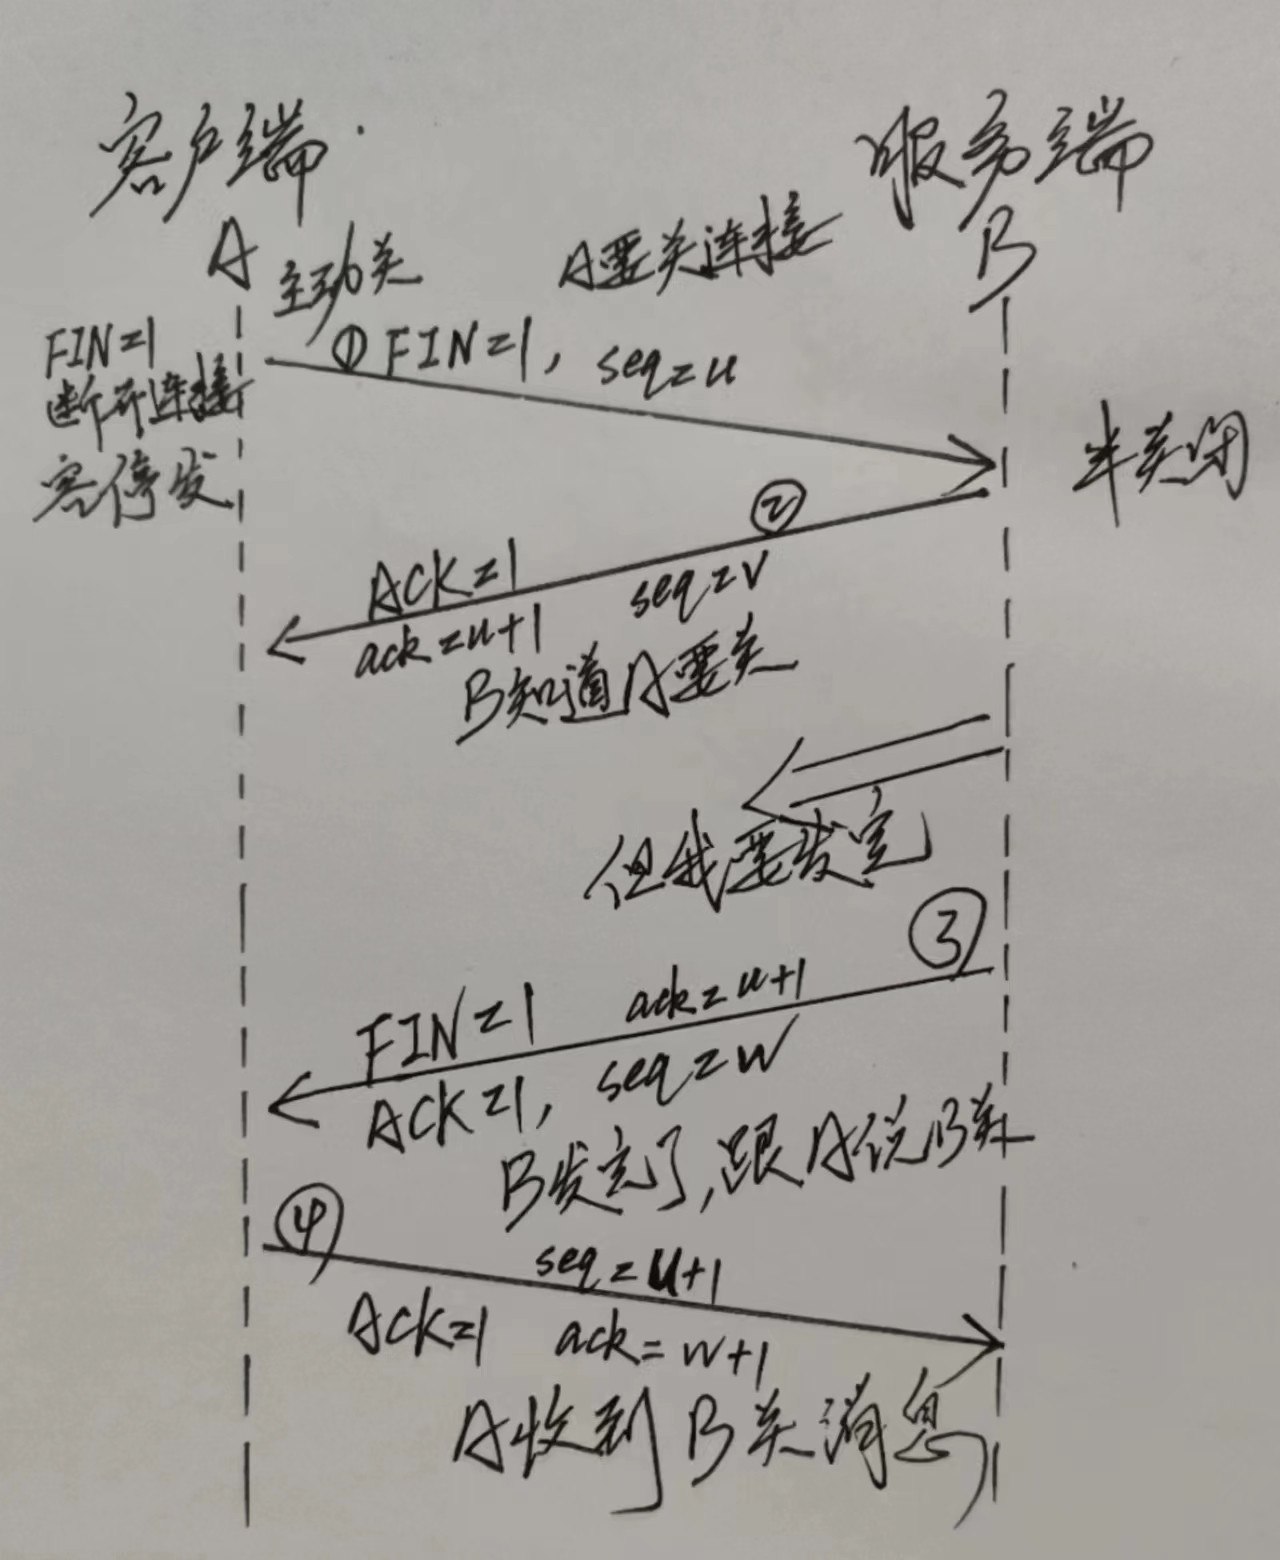 客户端
服务端
A
B
主动关
A要关连接
FIN=1
断开连接
客停发
① FIN=1, seq=u
半关闭
②
ACK=1
seq=v
ack=u+1
B知道A要关
但我要发完
③
FIN=1 ack=u+1
ACK=1, seq=w
B发完了,跟A说B关
④
seq=u+1
ACK=1 ack=w+1
A收到B关消息